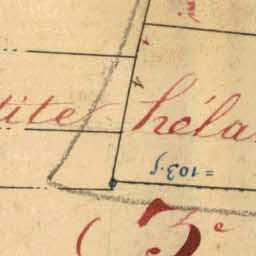 tite héla
= 103.5
3e